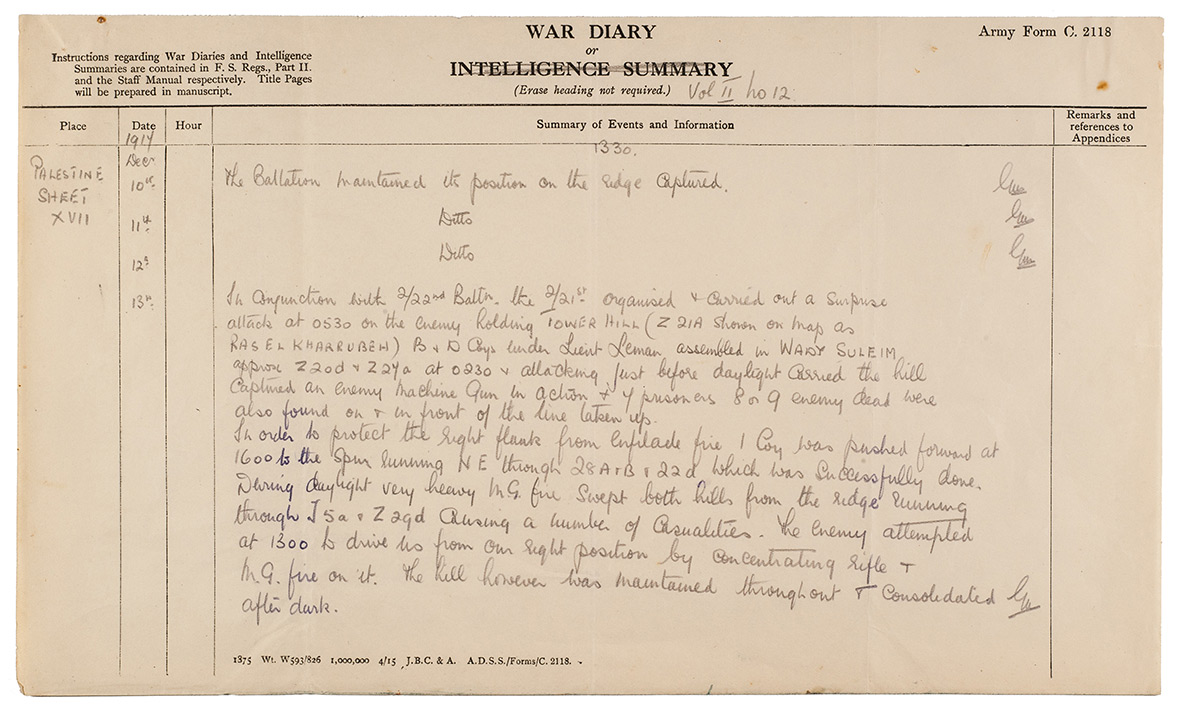 WAR DIARY
or
INTELLIGENCE SUMMARY
(Erase heading not required.) Vol II No 12
Army Form C. 2118
Instructions regarding War Diaries and Intelligence
Summaries are contained in F. S. Regs., Part II.
and the Staff Manual respectively. Title Pages
will be prepared in manuscript.
Place
Date
Hour
Summary of Events and Information
Remarks and
references to
Appendices
1917
1330.
Decr
PALESTINE
SHEET
XVII
10th The Battation maintained its position on the ridge captured.
11th Ditto
12th Ditto
13th In conjunction with 2/22nd Battn. the 2/21st organised & carried out a surprise
attack at 0530 on the enemy holding TOWER HILL (Z 21A shown on map as
RAS EL KHARRUBEH) B & D Coys under Lieut Leman assembled in WADY SULEIM
approx Z 20d & Z 27a at 0230 & attacking just before daylight carried the hill
Captured an enemy machine Gun in action & 7 prisoners 8 or 9 enemy dead were
also found on & in front of the line taken up.
In order to protect the right flank from enfilade fire 1 Coy was pushed forward at
1600 to the spur running NE through 28A & B & 22d which was successfully done.
During daylight very heavy M.G. fire swept both hills from the ridge running
through J 5a & Z 29d causing a number of casualities. The enemy attempted
at 1300 to drive us from our right position by concentrating rifle &
M.G. fire on it. The hill however was maintained throughout & consolidated
after dark.
1875 Wt. W593/826 1,000,000 4/15 J.B.C. & A. A.D.S.S./Forms/C. 2118.